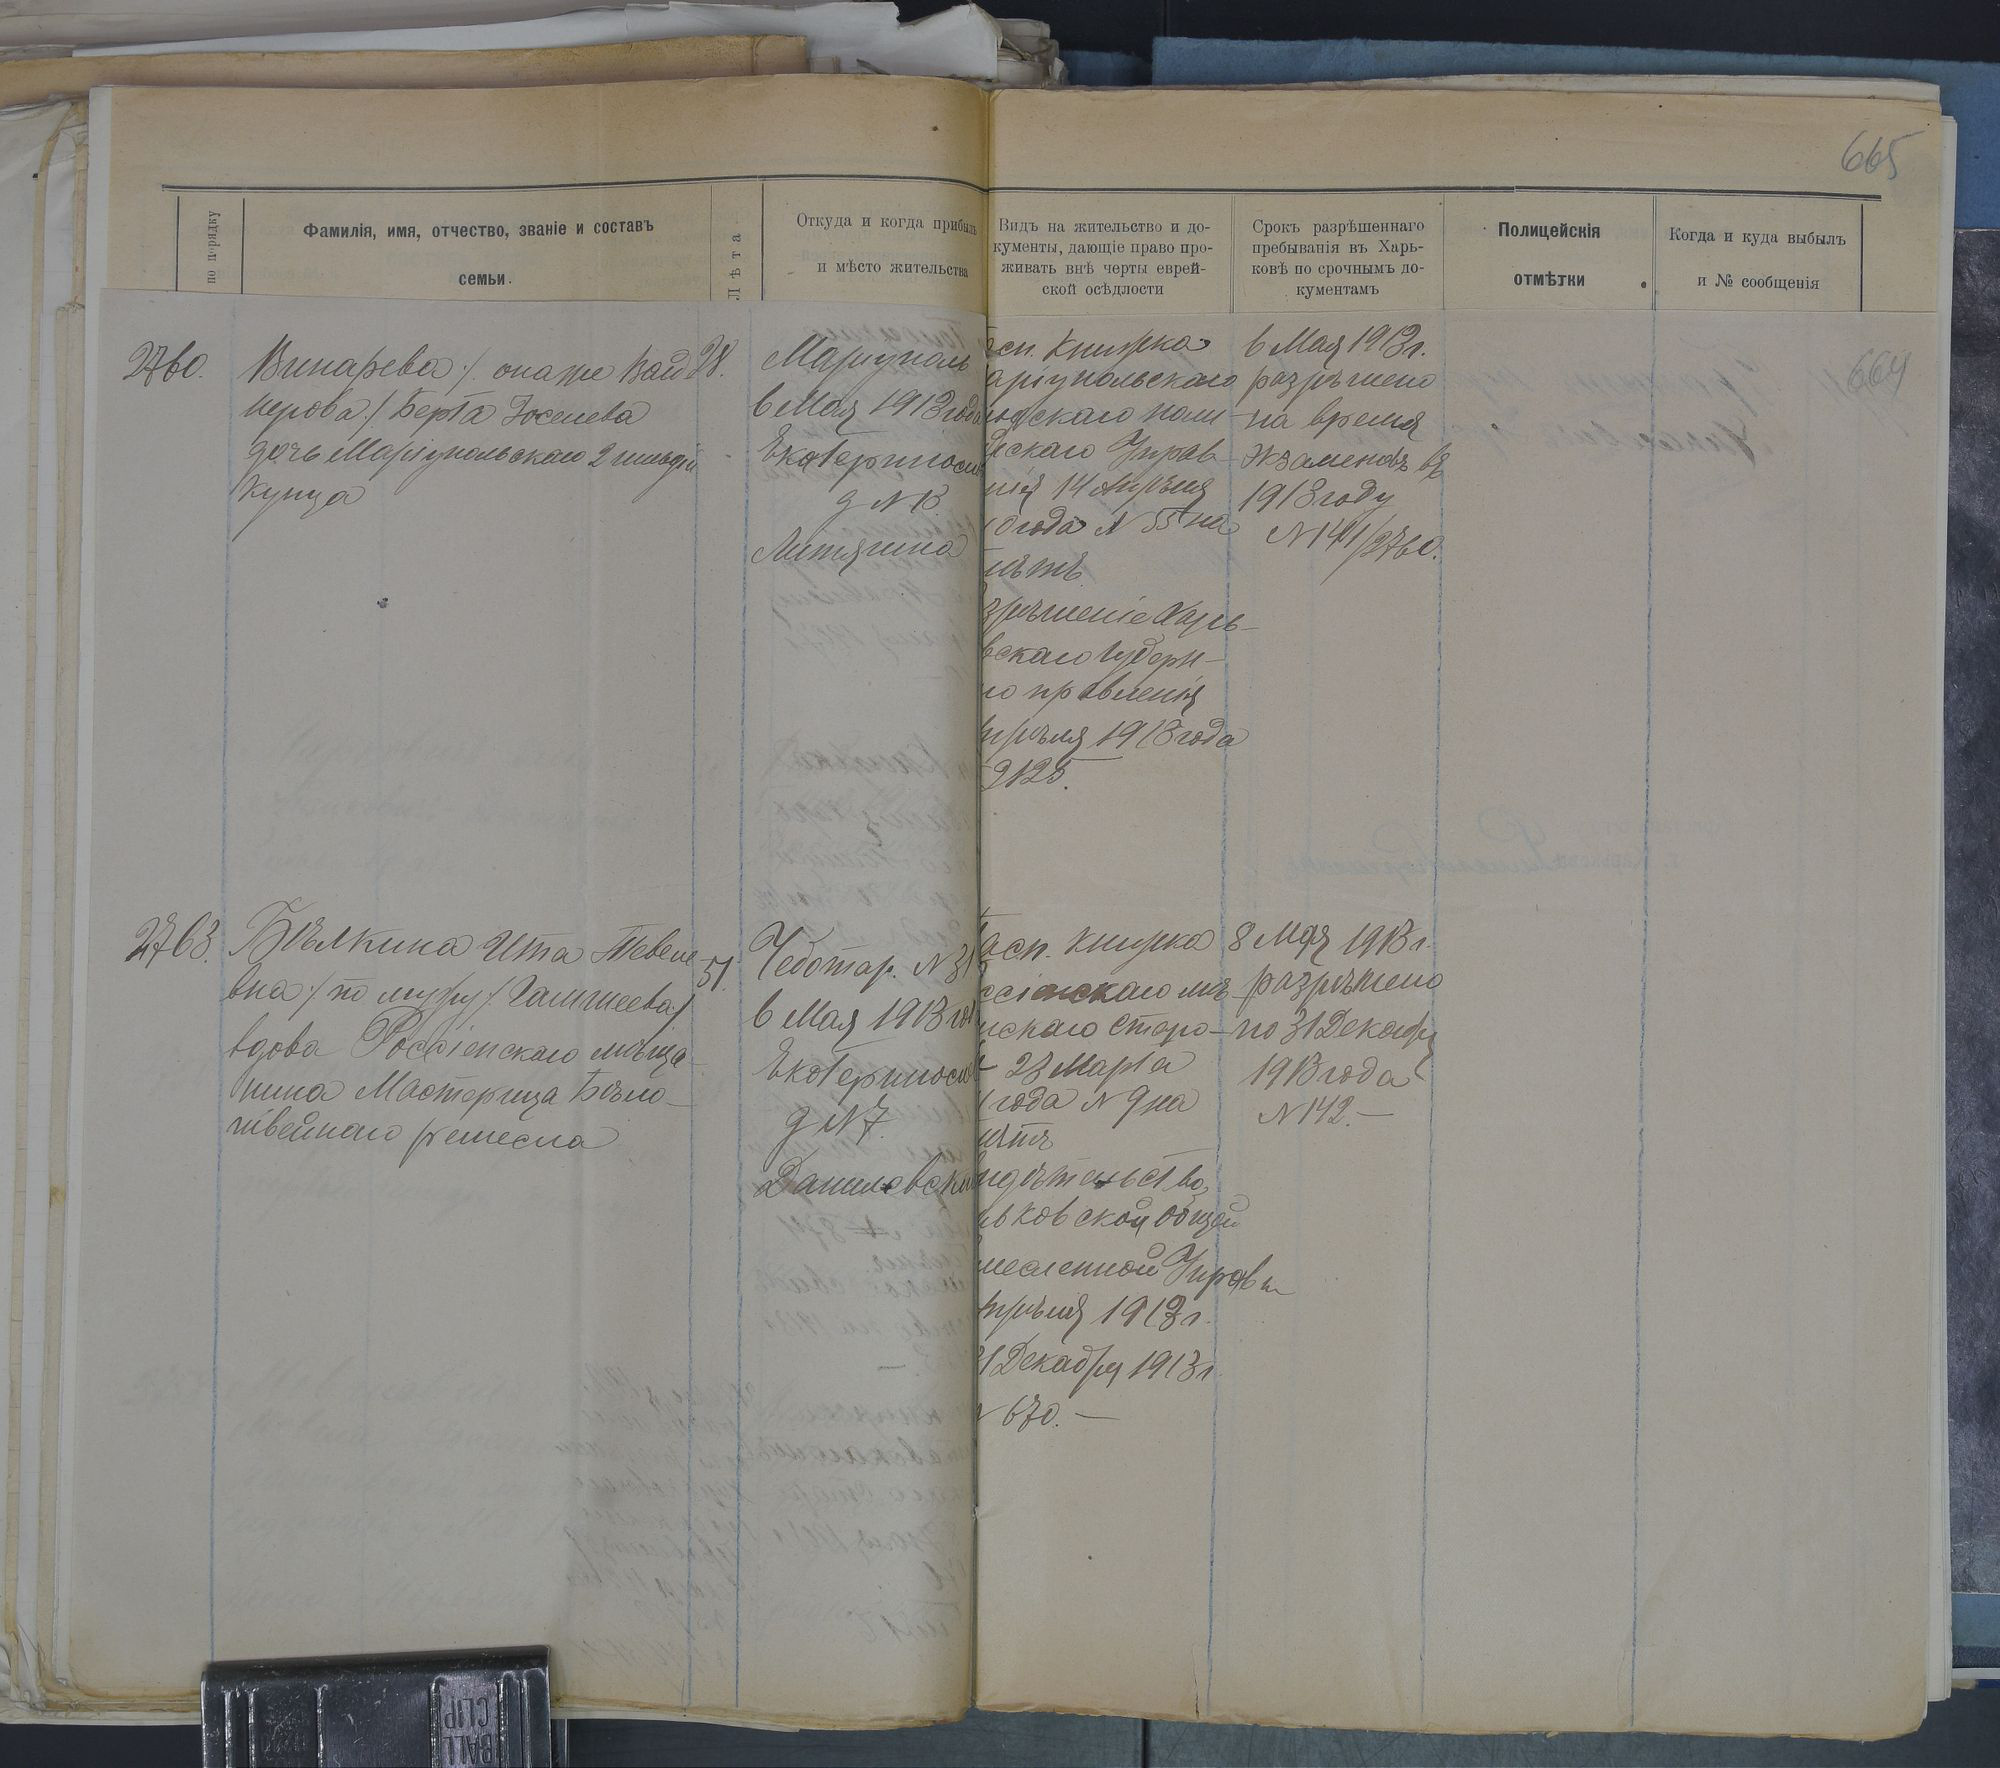 665
по порядку
Фамилія, имя, отчество, званіе и составъ
семьи.
Лѣта
Откуда и когда прибылъ
и мѣсто жительства
Видъ на жительство и до-
кументы, дающіе право про-
живать внѣ черты еврей-
ской осѣдлости
Срокъ разрѣшеннаго
пребыванія въ Харь-
ковѣ по срочнымъ до-
кументамъ
Полицейскія
отмѣтки
Когда и куда выбылъ
и № сообщенія
2760.
Винарева /. она же Вай
нерова / Берта
дочь Маріупольскаго 2 гильдіи
купца
28.
Маріуполь
6 Мая 1913 года
Екатеринослав
д N 13
Литягина
сп. книжка
аріупольскаго
родскаго поли
ческаго Управ-
нія 14 Апрѣля
0 года N 55 на
лѣтъ
зрѣшеніе Харь-
вскаго Губерн-
го правленія
прѣля 1913 года
2125.
6 Мая 1913 г.
разрѣшено
на время
экзаменовъ въ
1913 году
N 141/2760.
2763.
Бѣлкина Ита Тевеле
вна / по мужу /
вдова Россіенскаго мѣща-
нина Мастерица Бѣло-
швейнаго ремесла
51.
Чеботар. N 31
6 Мая 1913 год
Екатеринослав
д N 7.
Даниловский
асп. книжка
ссіенскаго мѣ-
нскаго Старо-
23 Марта
года N 9 на
лѣтъ
идѣтельство
ьковской общей
месленной Управы
прѣля 1913 г.
31 Декабря 1913 г.
N 670.—
8 Мая 1913 г.
разрѣшено
по 31 Декабря
1913 года
N 142.—
664
BALL
CLIP